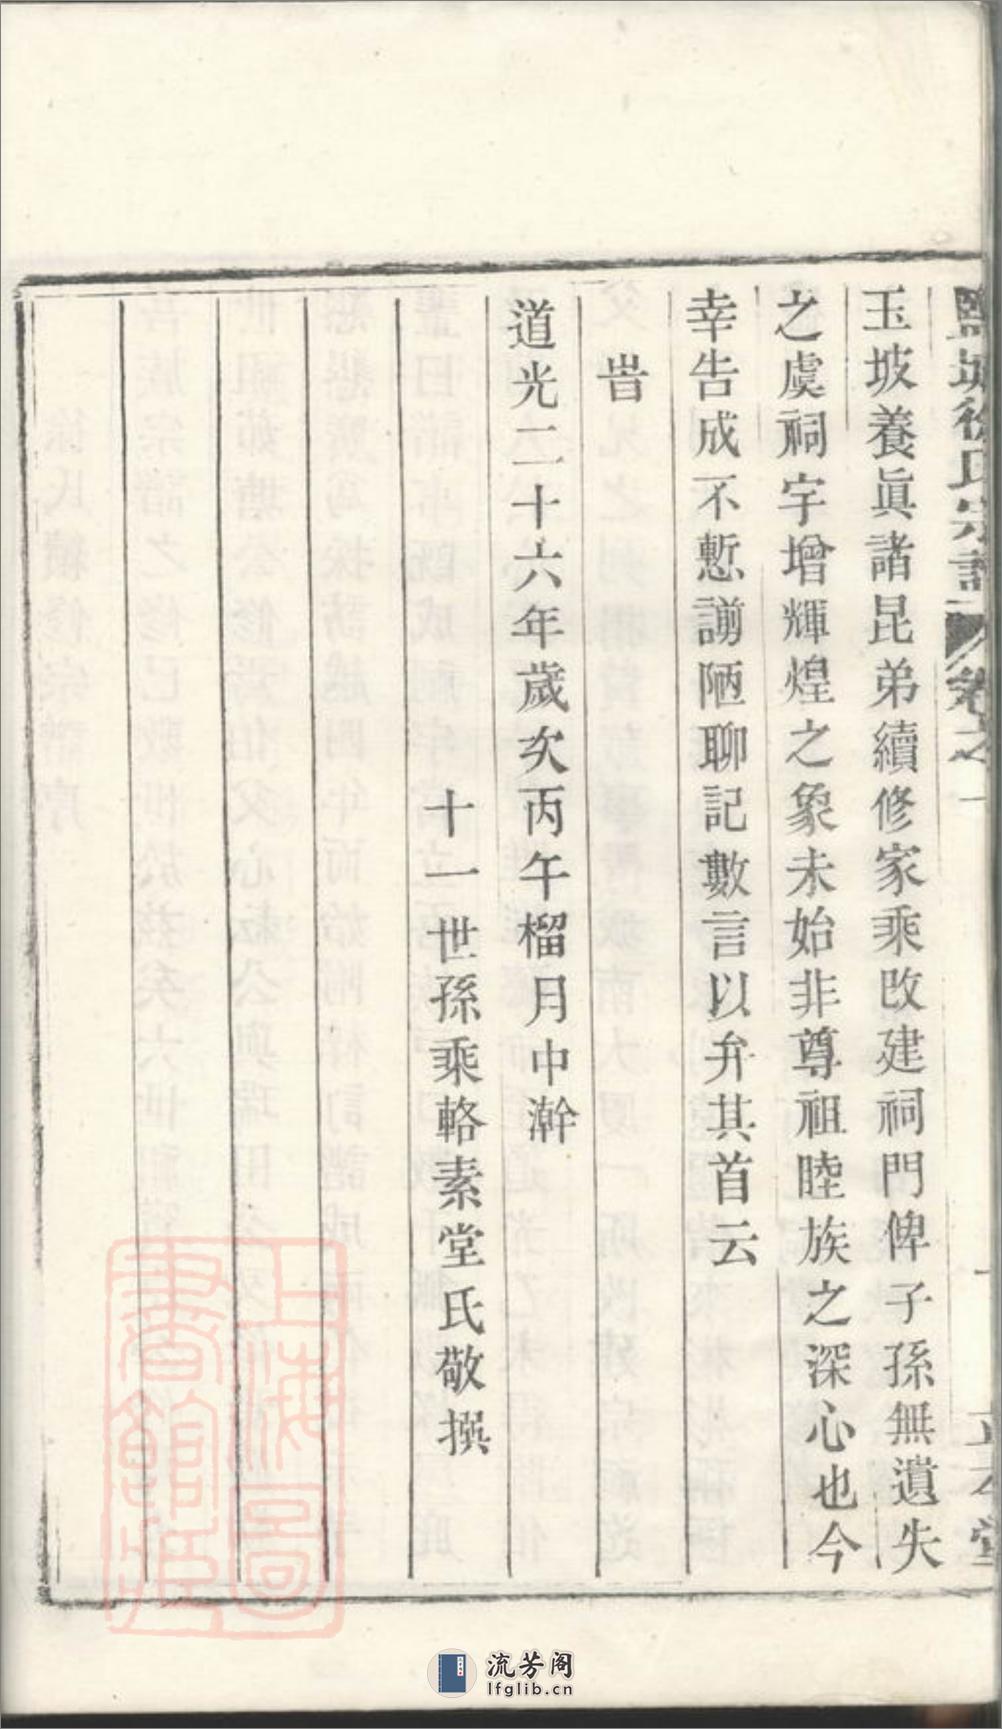 鹽城徐氏宗譜 卷之一
玉坡養眞諸昆弟續修家乘改建祠門俾子孫無遺失
之虞祠宇增輝煌之象未始非尊祖睦族之深心也今
幸告成不慙謭陋聊記數言以弁其首云
旹
道光二十六年歲次丙午榴月中澣
十一世孫乘輅素堂氏敬撰
上海圖書館藏
流芳阁
lfglib.cn